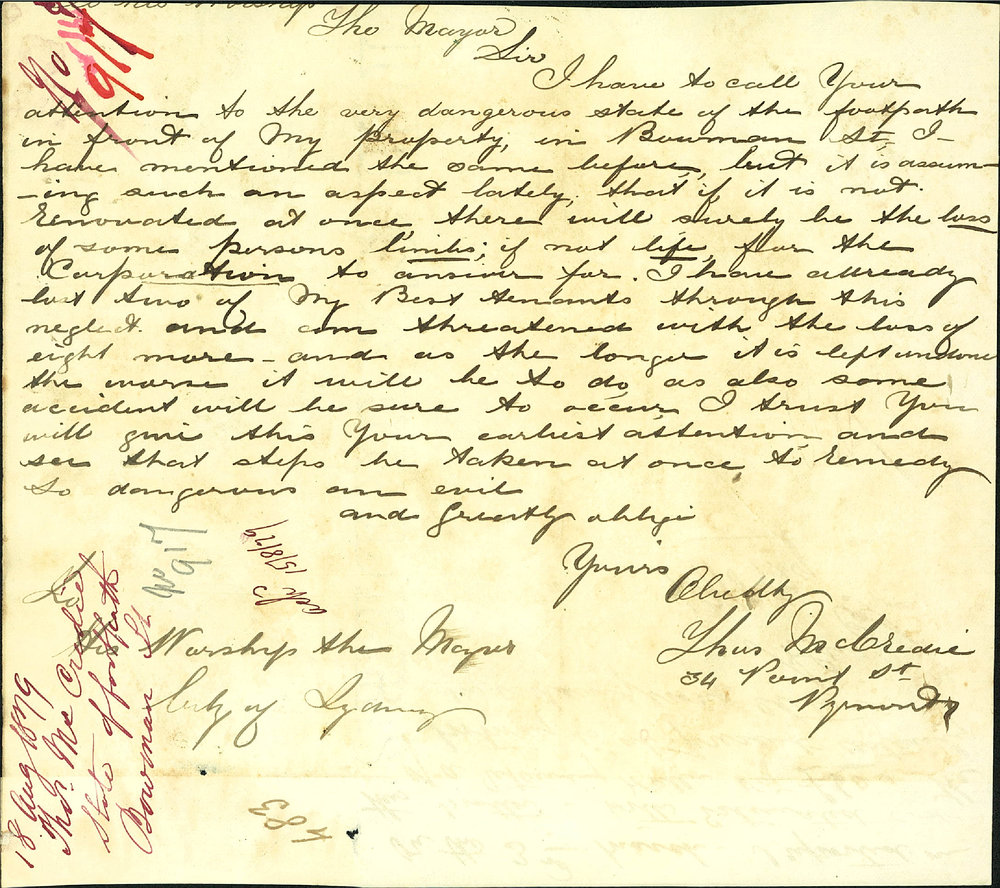 His Worship
The Mayor
Sir
I have to call Your
attention to the very dangerous state of the footpath
in front of My property, in Bowman St, I-
have mentioned the same before, but it is assum-
-ing such an aspect lately, that if it is not
renovated at once there will surely be the loss
of some persons limbs; if not life, for the
Corporation to answer for. I have allready
lost two of My Best tenants through this
neglect and am threatened with the loss of
eight more - and as the longer it is left undone
the worse it will be to do, as also some
accident will be sure to occur, I trust You
will give this Your earliest attention, and
see that steps be taken at once, to remedy
so dangerous an evil
and greatly oblige
Yours
Obedtly
Thos McCredie
34 Point St
Pyrmont
To
His Worship the Mayor
City of Sydney
No 917
No 917
ack 15/8/79
18 Aug 1879
Thos. McCredie
State of footpath
Bowman St
583